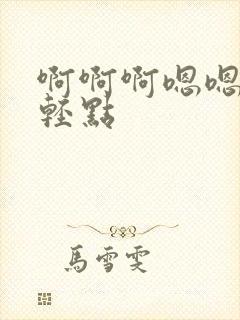 啊啊啊嗯嗯
輕點
馬雪雯